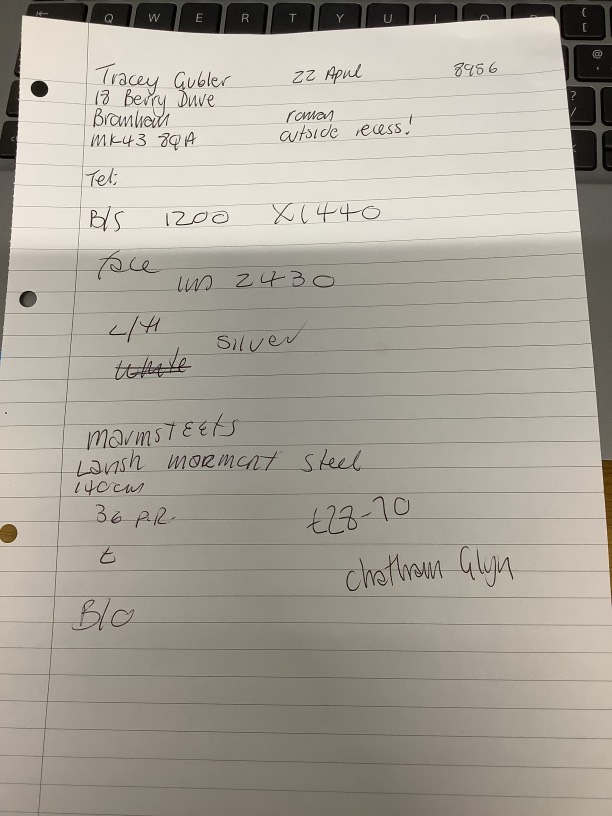 Tracey Gubler 22 April 8986
18 Berry Drive
Bromham roman
MK43 8QA outside recess!
Tel:
B/S 1200 X1440
face
LHS 2430
L/H
White Silver
Lavish moment Steel
140cm
36 P.R. £28-70
£
Chatham Glyn
B/O